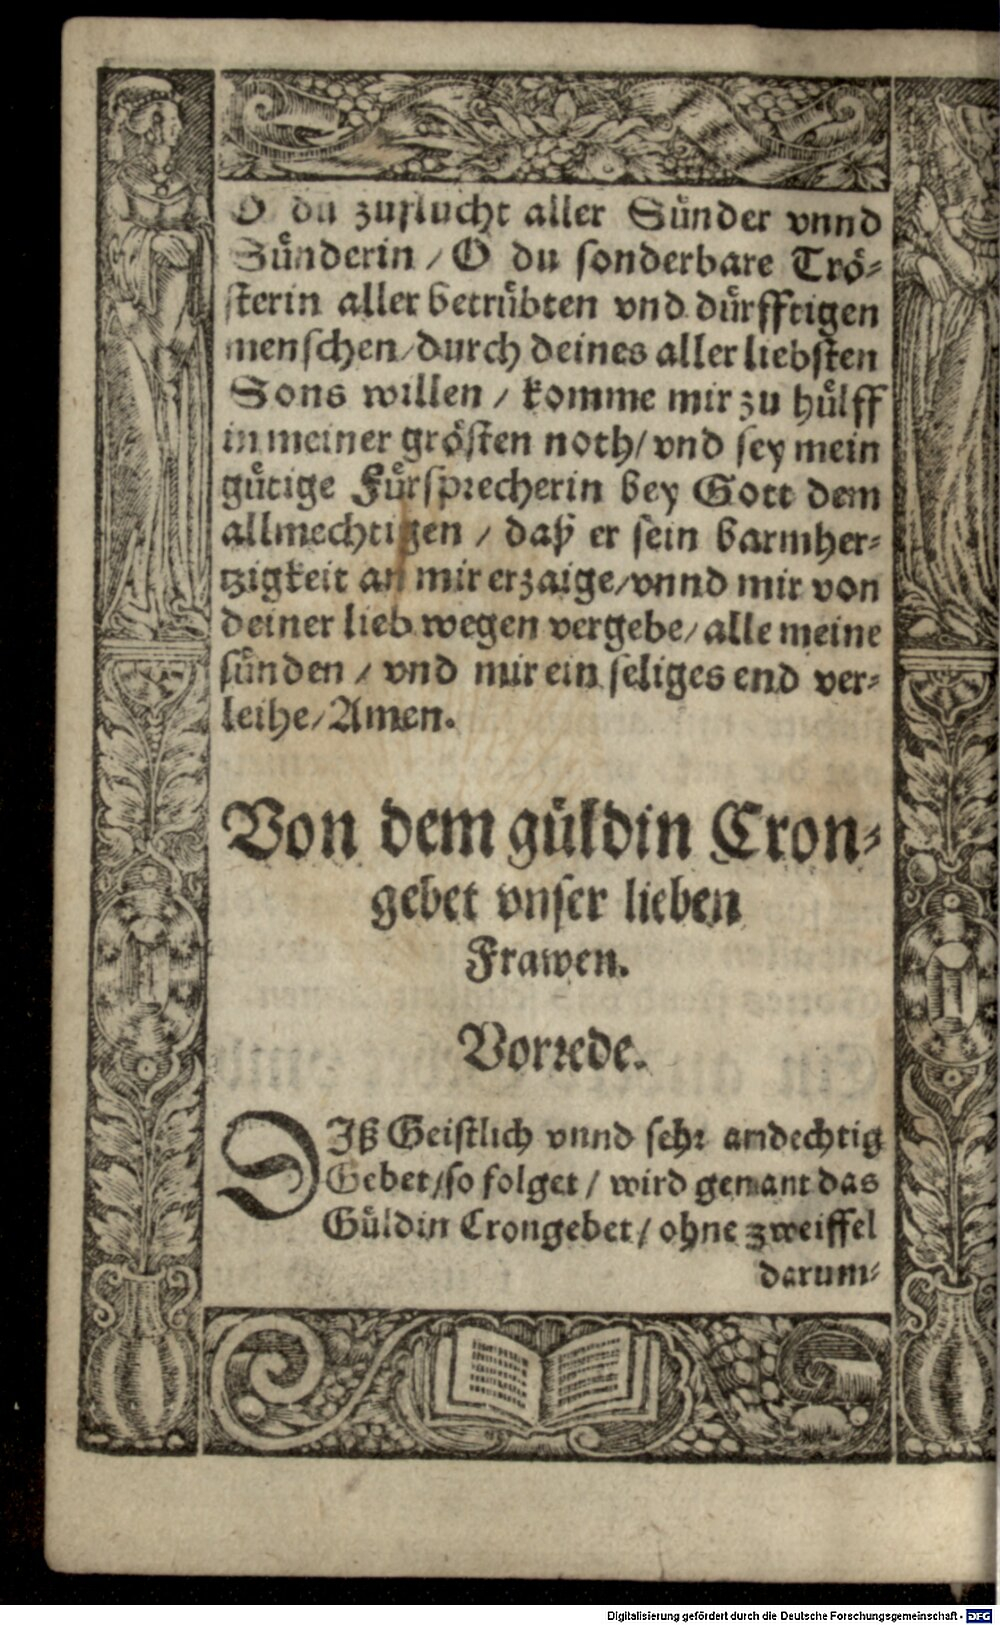 O du zuflucht aller Sünder vnnd
Sünderin / O du sonderbare Trö-
sterin aller betrübten vnd dürfftigen
menschen / durch deines aller liebsten
Sons willen / komme mir zu hülff
in meiner grösten noth / vnd sey mein
gütige Fürsprecherin bey Gott dem
allmechtigen / daß er sein barmher-
tzigkeit an mir erzaige / vnnd mir von
deiner lieb wegen vergebe / alle meine
sünden / vnd mir ein seliges end ver-
leihe / Amen.
Von dem güldin Cron-
gebet vnser lieben
Frawen.
Vorrede.
DJß Geistlich vnnd sehr andechtig
Gebet / so folget / wird genant das
Güldin Crongebet / ohne zweiffel
darum-
Digitalisierung gefördert durch die Deutsche Forschungsgemeinschaft - DFG